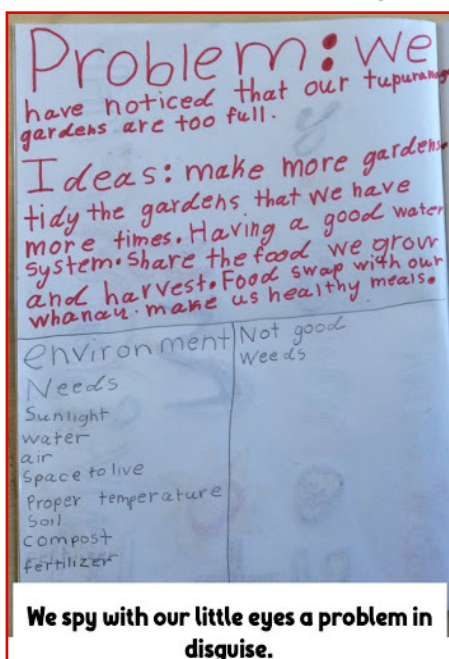 Problem: We
have noticed that our tupuranga
gardens are too full.
Ideas: make more gardens.
tidy the gardens that we have
more times. Having a good water
system. Share the food we grow
and harvest. Food swap with our
whanau. make us healthy meals.
environment
Needs
Sunlight
water
air
Space to live
Proper temperature
Soil
compost
fertilizer
Not good
weeds
We spy with our little eyes a problem in
disguise.